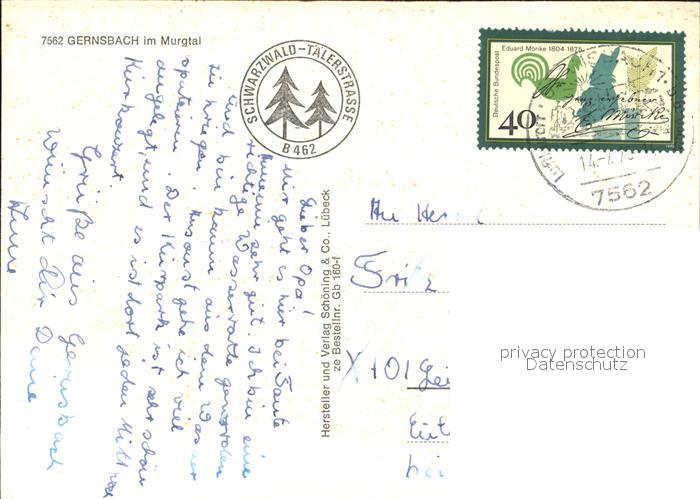 7562 GERNSBACH im Murgtal
SCHWARZWALD-TÄLERSTRASSE
B 462
Deutsche Bundespost
Eduard Mörike 1804-1875
40
E. Mörike
14.-7.75
7562
Lieber Opa!
Mir geht es hier bei Tante
sehr gut. Ich bin eine
richtige Wasserratte geworden
und bin kaum aus dem Wasser
zu kriegen. Ansonst gehe ich viel
spazieren. Der Kurpark ist sehr schön
angelegt, und es ist dort jeden Mittwoch
Kurkonzert.
Grüße aus Gernsbach
wünscht dir Deine
Anne
Hersteller und Verlag Schöning & Co., Lübeck
ze Bestellnr. Gb 160-f
An Her
Fritz
privacy protection
Datenschutz